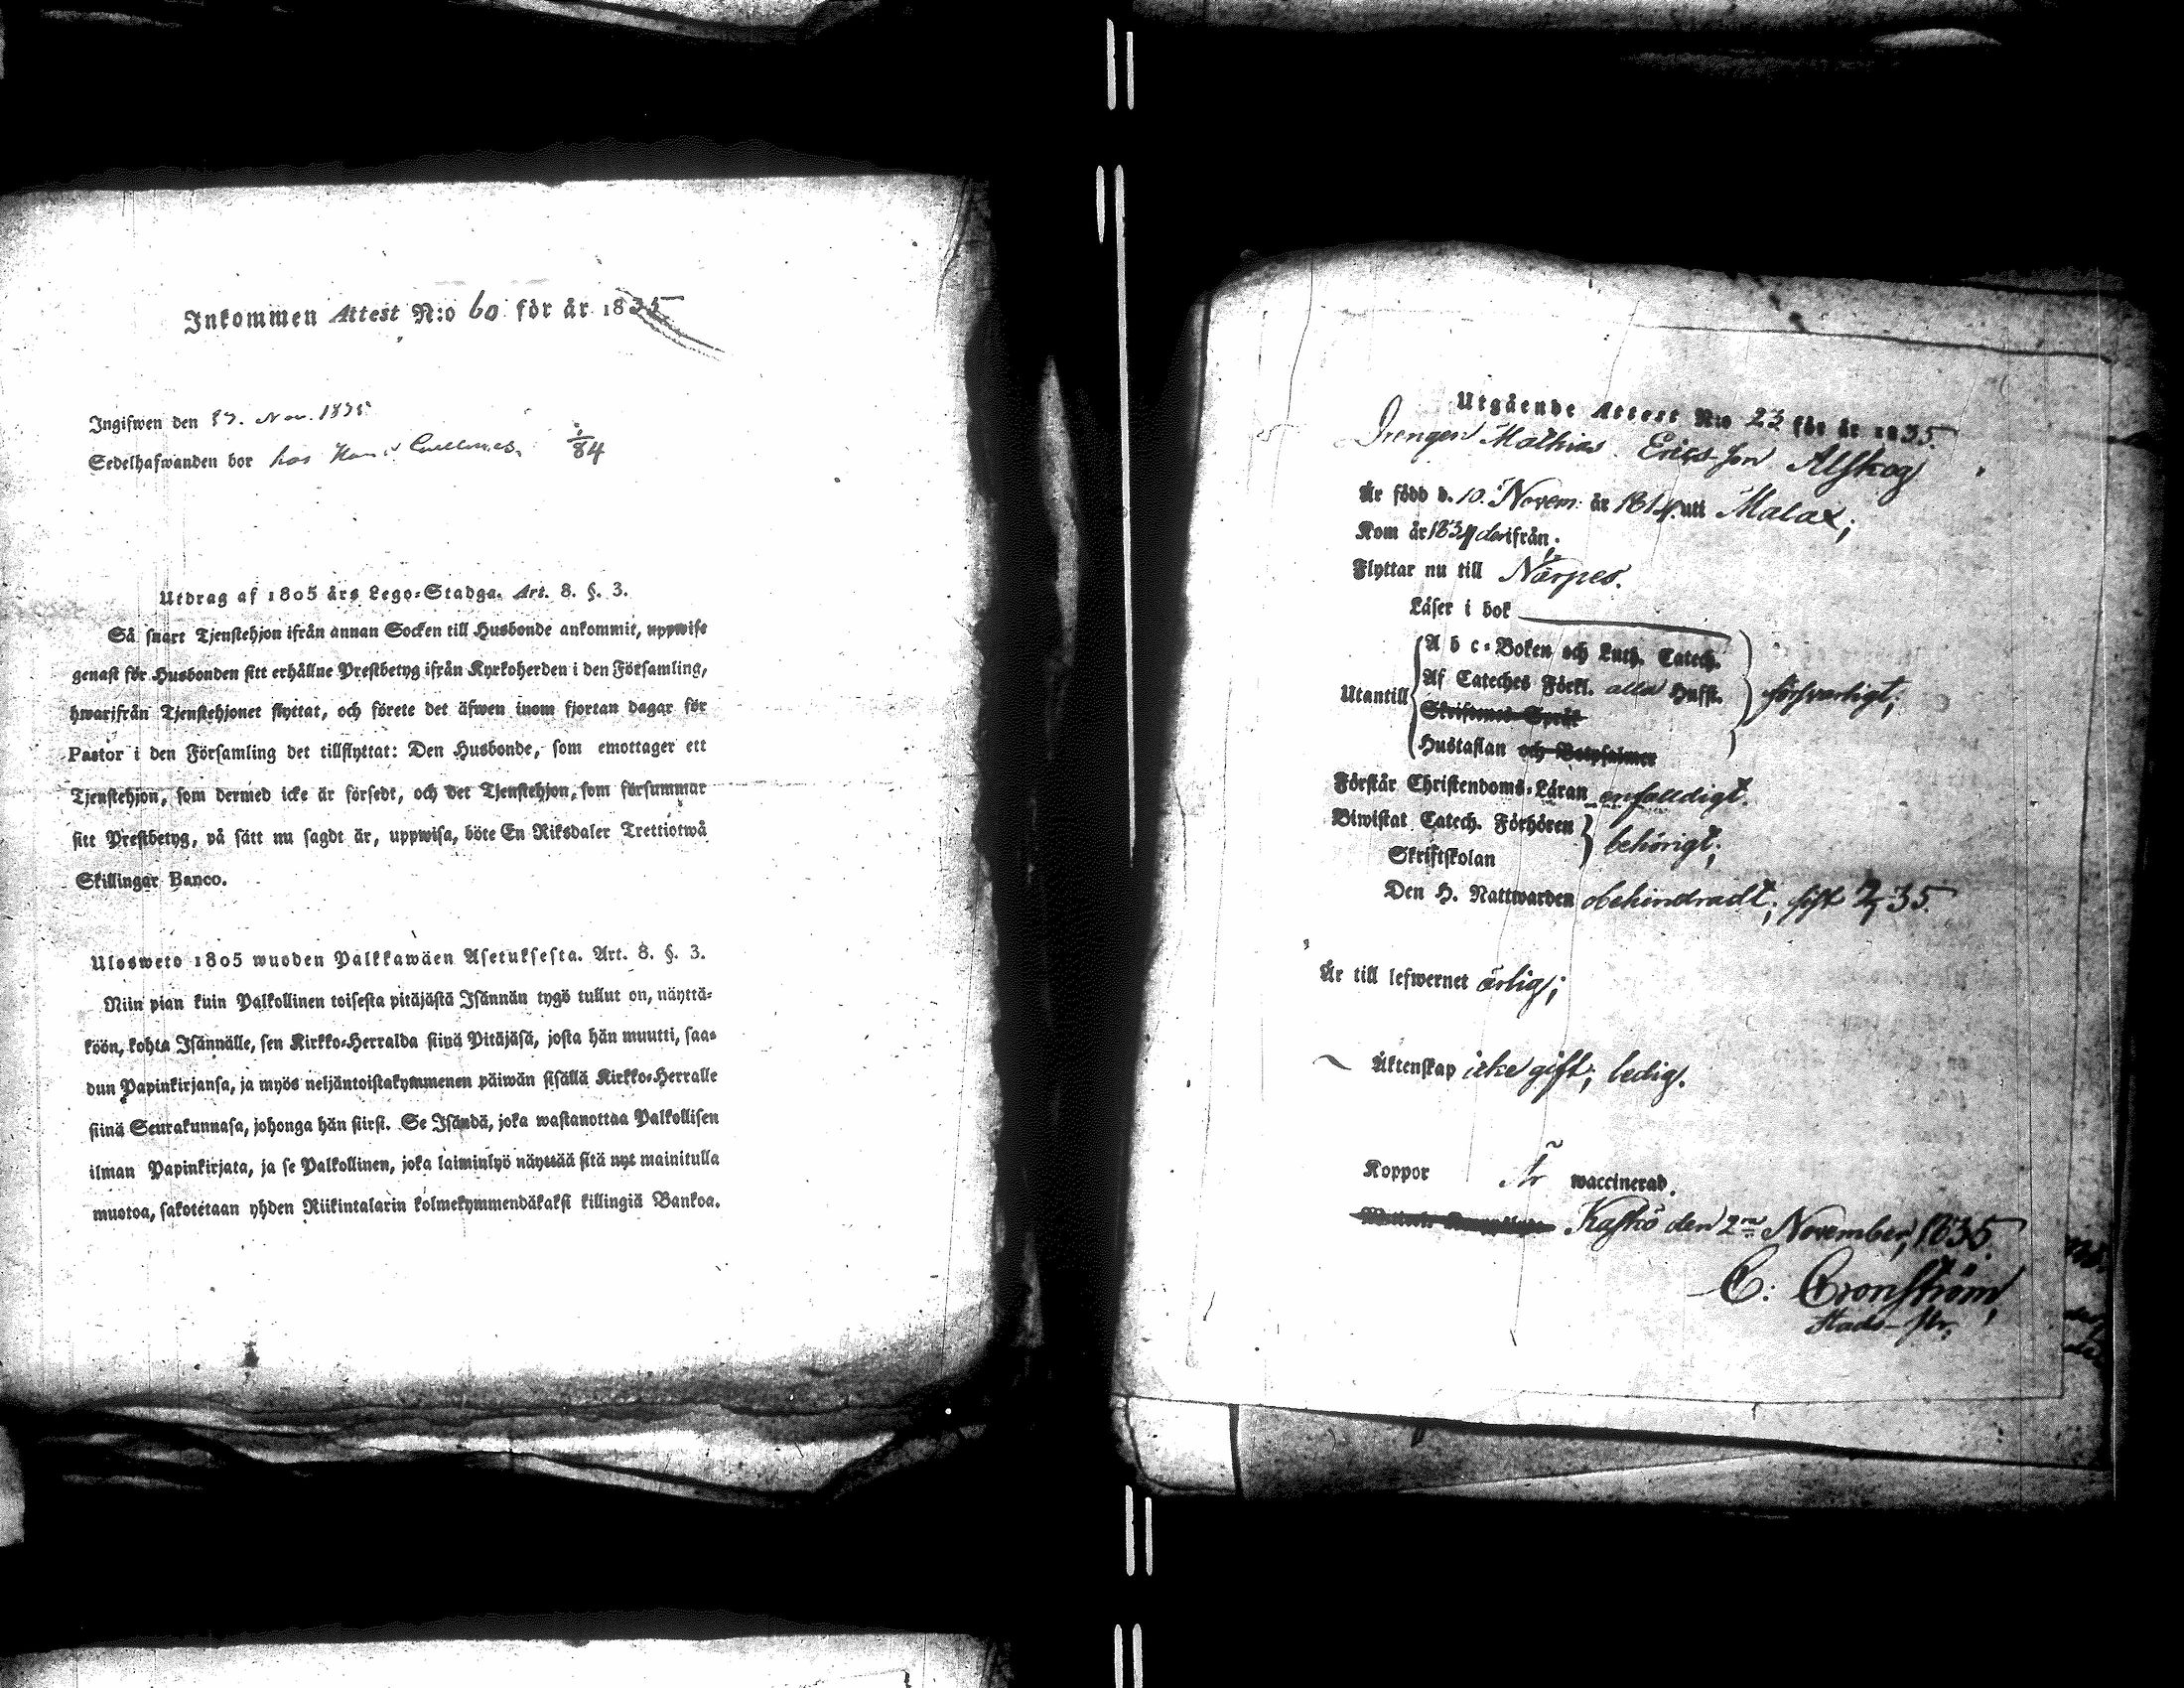 Inkommen Attest N:o 60 för år 1835
Ingifwen den Nov. 1835
Sedelhafwanden bor hos 1/84
Utdrag af 1805 års Lego-Stadga. Art. 8. §. 3.
Så snart Tjenstehjon ifrån annan Socken till Husbonde ankommit, uppwise
genast för Husbonden sitt erhållne Prestbetyg ifrån Kyrkoherden i den Församling,
hwarifrån Tjenstehjonet flyttat, och förete det äfwen inom fjortan dagar för
Pastor i den Församling det tillflyttat: Den Husbonde, som emottager ett
Tjenstehjon, som dermed icke är försedt, och det Tjenstehjon, som försummar
sitt Prestbetyg, på sätt nu sagdt är, uppwisa, böte En Riksdaler Trettiotwå
Skillingar Banco.
Ulosweto 1805 wuoden Palkkawäen Asetuksesta. Art. 8. §. 3.
Niin pian kuin Palkollinen toisesta pitäjästä Isännän tygö tullut on, näyttä-
köön, kohta Isännälle, sen Kirkko-Herralda siinä Pitäjäsä, josta hän muutti, saa-
dun Papinkirjansa, ja myös neljäntoistakymmenen päiwän sisällä Kirkko-Herralle
siinä Seurakunnasa, johonga hän siirsi. Se Isändä, joka wastanottaa Palkollisen
ilman Papinkirjata, ja se Palkollinen, joka laiminlyö näyttää sitä nyt mainitulla
muotoa, sakotetaan yhden Riikintalarin kolmekymmendäkaksi killingiä Bankoa.
Utgående Attest N:o 23 för år 1835.
Drengen Mathias Ericsson Alskog
Är född d. 10. Novem: år 1814. uti Malax;
Kom år 1834 derifrån.
Flyttar nu till Närpes.
Läser i bok
A b c-Boken och Luth. Catech.
Af Cateches Förkl. alla Hufst.
Utantill försvarligt;
Skriftenes Språk
Hustaflan och Botpsalmer
Förstår Christendoms-Läran enfalldigt.
Biwistat Catech. Förhören
behörigt;
Skriftskolan
Den H. Nattwarden obehindradt; sist 35.
Är till lefwernet ärlig;
Äktenskap icke gift; ledig.
Koppor Är waccinerad.
Kaskö den 2 November, 1835.
C: Cronström
Stads-